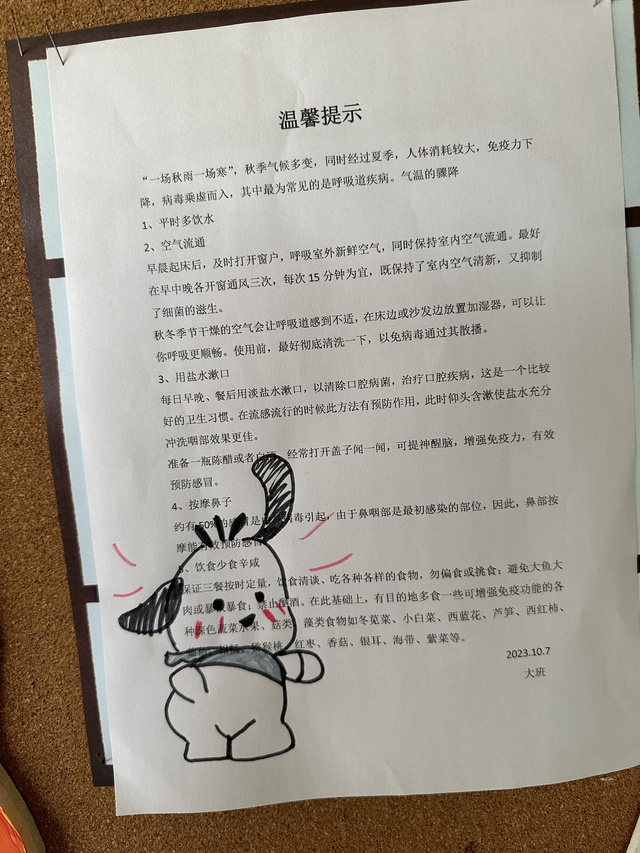 温馨提示
“一场秋雨一场寒”，秋季气候多变，同时经过夏季，人体消耗较大，免疫力下
降，病毒乘虚而入，其中最为常见的是呼吸道疾病。气温的骤降
1、平时多饮水
2、空气流通
早晨起床后，及时打开窗户，呼吸室外新鲜空气，同时保持室内空气流通。最好
在早中晚各开窗通风三次，每次 15 分钟为宜，既保持了室内空气清新，又抑制
了细菌的滋生。
秋冬季节干燥的空气会让呼吸道感到不适，在床边或沙发边放置加湿器，可以让
你呼吸更顺畅。使用前，最好彻底清洗一下，以免病毒通过其散播。
3、用盐水漱口
每日早晚、餐后用淡盐水漱口，以清除口腔病菌，治疗口腔疾病，这是一个比较
好的卫生习惯。在流感流行的时候此方法有预防作用，此时仰头含漱使盐水充分
冲洗咽部效果更佳。
准备一瓶陈醋或者白酒，经常打开盖子闻一闻，可提神醒脑，增强免疫力，有效
预防感冒。
4、按摩鼻子
约有 50%的感冒是病毒引起，由于鼻咽部是最初感染的部位，因此，鼻部按
摩能有效预防感冒
、饮食少食辛咸
保证三餐按时定量，饮食清谈、吃各种各样的食物，勿偏食或挑食；避免大鱼大
肉或暴饮暴食；禁止酗酒。在此基础上，有目的地多食一些可增强免疫功能的各
种深色蔬菜水果、菇类、藻类食物如冬苋菜、小白菜、西蓝花、芦笋、西红柿、
猕猴桃、红枣、香菇、银耳、海带、紫菜等。
2023.10.7
大班